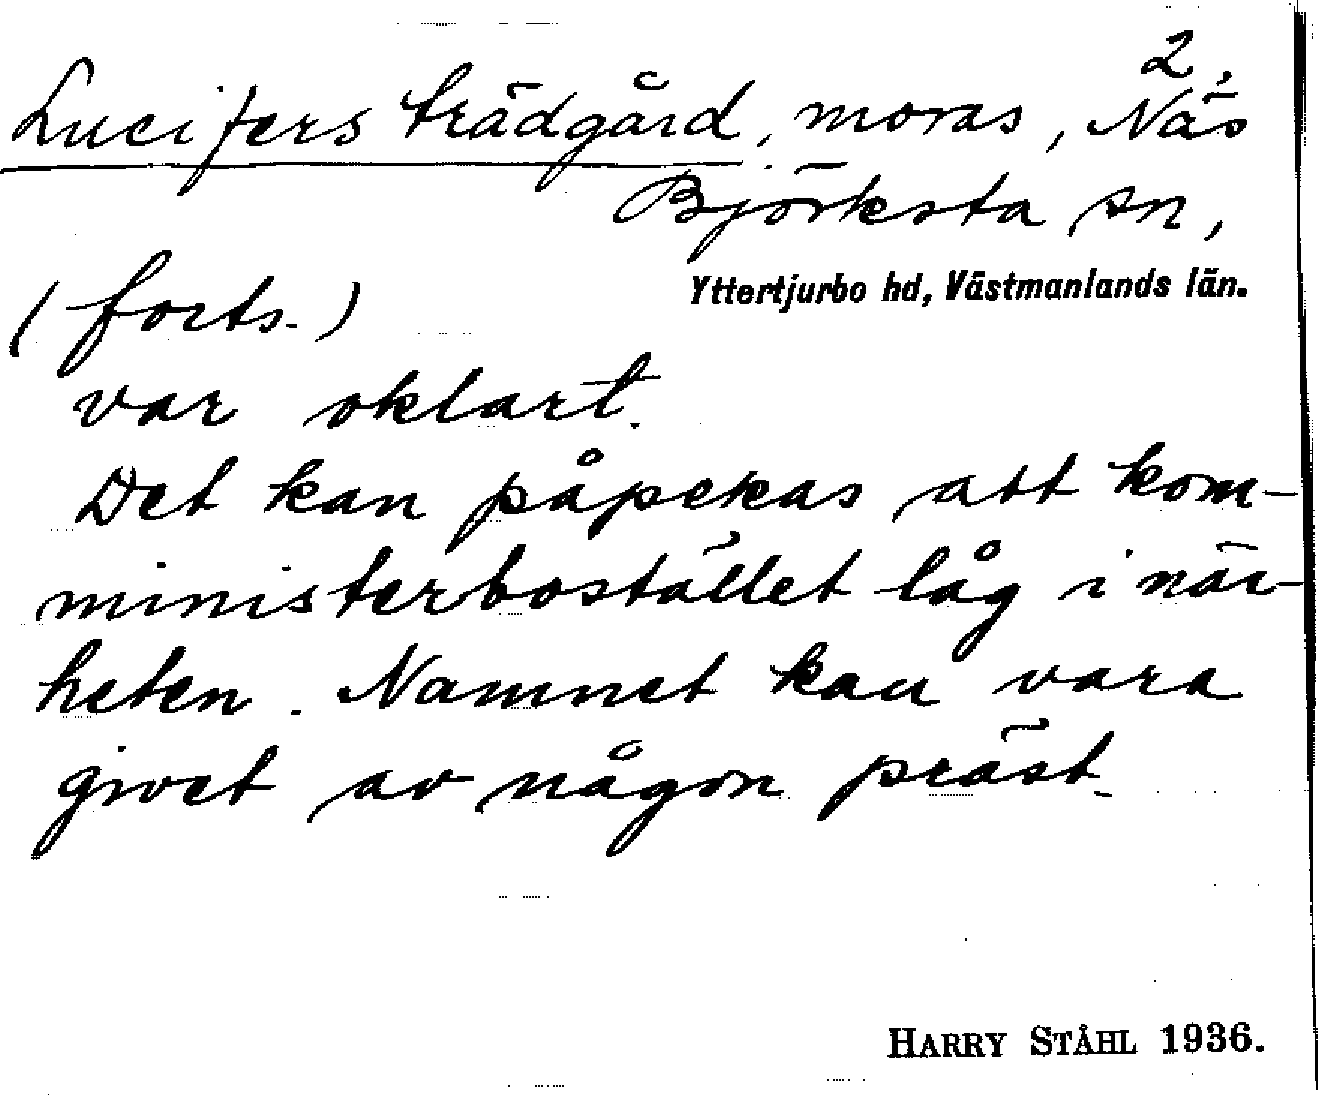 2.
Lucifers trädgård, moras, Näs
Björksta sn,
Yttertjurbo hd, Västmanlands län.
(forts.)
var oklart.
Det kan påpekas att kom-
ministerbostället låg i när-
heten. Namnet kan vara
givet av någon präst.
HARRY STÅHL 1936.